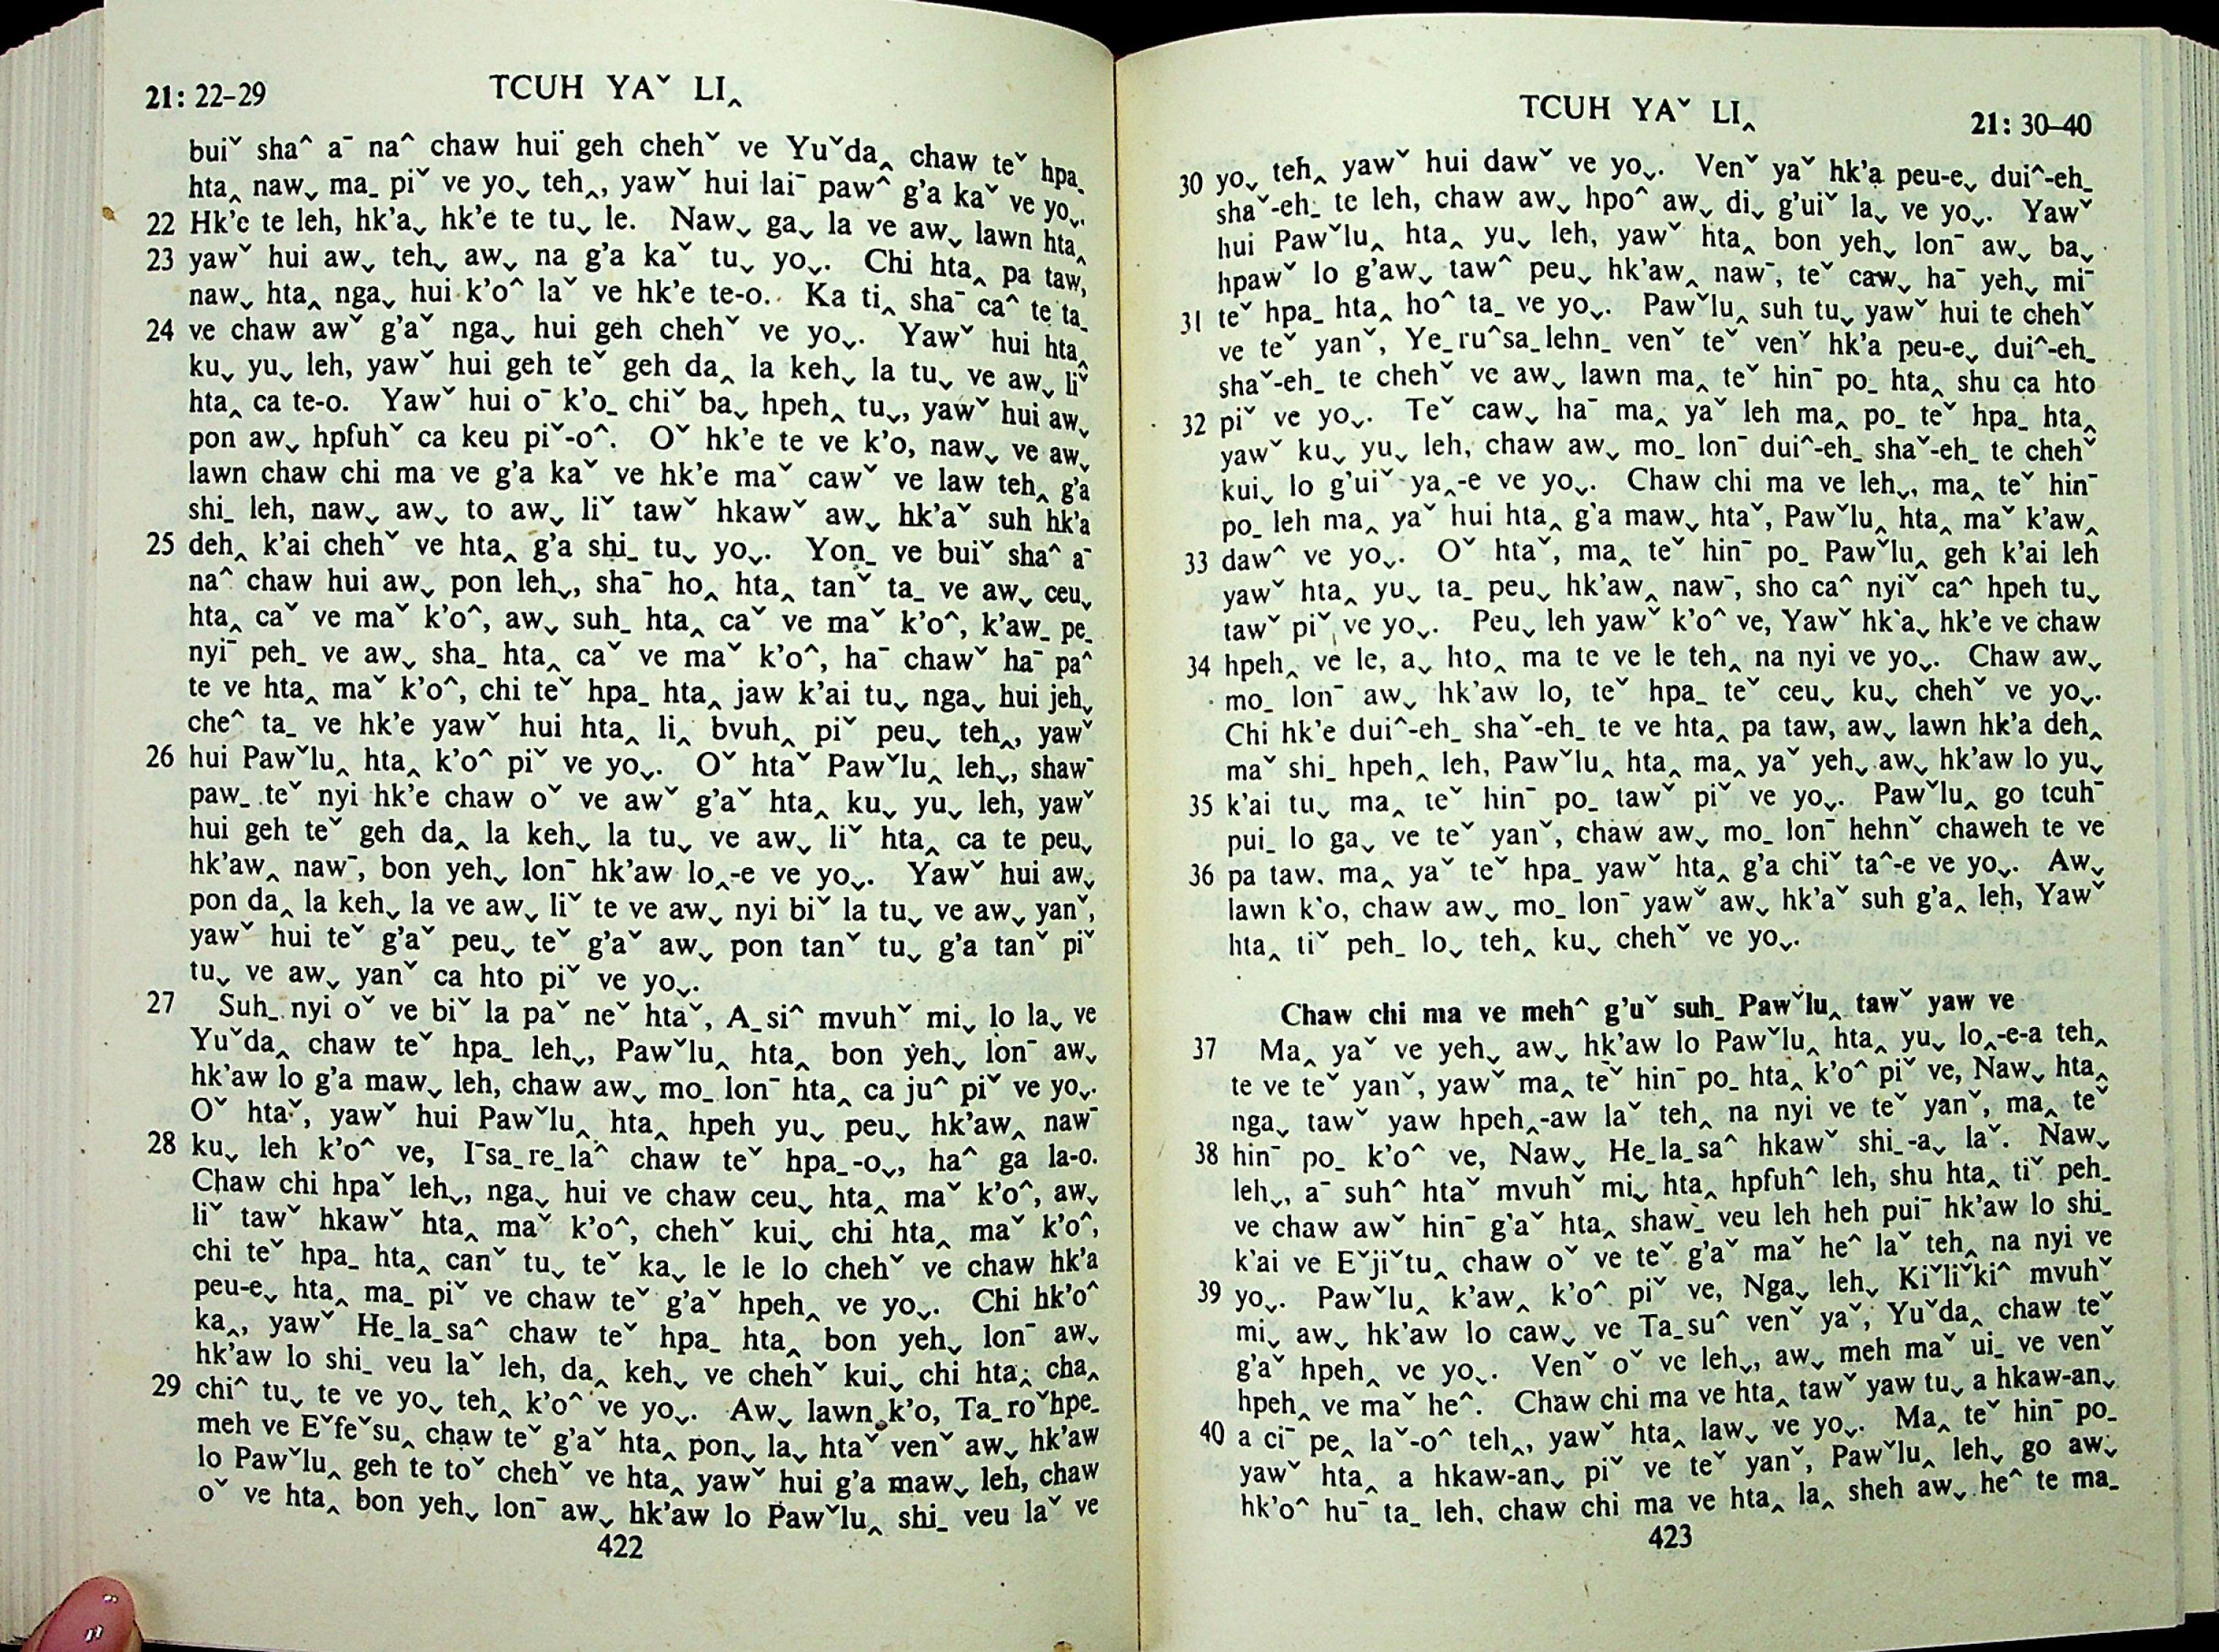 21: 22–29
TCUH YAˇ LI‸
buiˇ sha^ aˉ na^ chaw huiˉ geh chehˇ ve Yuˇda‸ chaw teˇ hpa_
hta‸ nawˬ ma_ piˇ ve yoˬ teh‸, yawˇ hui laiˉ paw^ g'a kaˇ ve yoˬ.
22 Hk'e te leh, hk'aˬ hk'e te tuˬ le. Nawˬ gaˬ la ve awˬ lawn hta‸
23 yawˇ hui awˬ tehˬ awˬ na g'a kaˇ tuˬ yoˬ. Chi hta‸ pa taw,
nawˬ hta‸ ngaˬ hui k'o^ laˇ ve hk'e te-o. Ka ti‸ shaˉ ca^ te ta_
24 ve chaw awˇ g'aˇ ngaˬ hui geh chehˇ ve yoˬ. Yawˇ hui hta‸
kuˬ yuˬ leh, yawˇ hui geh teˇ geh da‸ la kehˬ la tuˬ ve awˬ liˇ
hta‸ ca te-o. Yawˇ hui oˉ k'o_ chiˇ baˬ hpeh‸ tuˬ, yawˇ hui awˬ
pon awˬ hpfuhˇ ca keu piˇ-o^. Oˇ hk'e te ve k'o, nawˬ ve awˬ
lawn chaw chi ma ve g'a kaˇ ve hk'e maˇ cawˇ ve law teh‸ g'a
shi_ leh, nawˬ awˬ to awˬ liˇ tawˇ hkawˇ awˬ hk'aˇ suh hk'a
25 deh‸ k'ai chehˇ ve hta‸ g'a shi_ tuˬ yoˬ. Yon_ ve buiˇ sha^ aˉ
na^ chaw hui awˬ pon lehˬ, shaˉ ho‸ hta‸ tanˇ ta_ ve awˬ ceuˬ
hta‸ caˇ ve maˇ k'o^, awˬ suh_ hta‸ caˇ ve maˇ k'o^, k'aw_ pe_
nyiˉ peh_ ve awˬ sha_ hta‸ caˇ ve maˇ k'o^, haˉ chawˇ haˉ pa^
te ve hta‸ maˇ k'o^, chi teˇ hpa_ hta‸ jaw k'ai tuˬ ngaˬ hui jehˬ
che^ ta_ ve hk'e yawˇ hui hta‸ li‸ bvuh‸ piˇ peuˬ teh‸, yawˇ
26 hui Pawˇlu‸ hta‸ k'o^ piˇ ve yoˬ. Oˇ htaˇ Pawˇlu‸ lehˬ, shawˉ
paw_ teˇ nyi hk'e chaw oˇ ve awˇ g'aˇ hta‸ kuˬ yuˬ leh, yawˇ
hui geh teˇ geh da‸ la kehˬ la tuˬ ve awˬ liˇ hta‸ ca te peuˬ
hk'aw‸ nawˉ, bon yehˬ lonˉ hk'aw lo‸-e ve yoˬ. Yawˇ hui awˬ
pon da‸ la kehˬ la ve awˬ liˇ te ve awˬ nyi biˇ la tuˬ ve awˬ yanˇ,
yawˇ hui teˇ g'aˇ peuˬ teˇ g'aˇ awˬ pon tanˇ tuˬ g'a tanˇ piˇ
tuˬ ve awˬ yanˇ ca hto piˇ ve yoˬ.
27 Suh_ nyi oˇ ve biˇ la paˇ neˇ htaˇ, A_si^ mvuhˇ miˬ lo laˬ ve
Yuˇda‸ chaw teˇ hpa_ lehˬ, Pawˇlu‸ hta‸ bon yehˬ lonˉ awˬ
hk'aw lo g'a mawˬ leh, chaw awˬ mo_ lonˉ hta‸ ca ju^ piˇ ve yoˬ.
Oˇ htaˇ, yawˇ hui Pawˇlu‸ hta‸ hpeh yuˬ peuˬ hk'aw‸ nawˉ
28 kuˬ leh k'o^ ve, Iˉsa_re_la^ chaw teˇ hpa_-oˬ, ha^ ga la-o.
Chaw chi hpaˇ lehˬ, ngaˬ hui ve chaw ceuˬ hta‸ maˇ k'o^, awˬ
liˇ tawˇ hkawˇ hta‸ maˇ k'o^, chehˇ kuiˬ chi hta‸ maˇ k'o^,
chi teˇ hpa_ hta‸ canˇ tuˬ teˇ kaˬ le le lo chehˇ ve chaw hk'a
peu-eˬ hta‸ ma_ piˇ ve chaw teˇ g'aˇ hpeh‸ ve yoˬ. Chi hk'o^
ka‸, yawˇ He_la_sa^ chaw teˇ hpa_ hta‸ bon yehˬ lonˉ awˬ
hk'aw lo shi_ veu laˇ leh, da‸ kehˬ ve chehˇ kuiˬ chi hta‸ cha‸
29 chi^ tuˬ te ve yoˬ teh‸ k'o^ ve yoˬ. Awˬ lawn k'o, Ta_roˇhpe_
meh ve Eˇfeˇsu‸ chaw teˇ g'aˇ hta‸ ponˬ laˬ htaˇ venˇ awˬ hk'aw
lo Pawˇlu‸ geh te toˇ chehˇ ve hta‸ yawˇ hui g'a mawˬ leh, chaw
oˇ ve hta‸ bon yehˬ lonˉ awˬ hk'aw lo Pawˇlu‸ shi_ veu laˇ ve
422
TCUH YAˇ LI‸
21: 30–40
30 yoˬ teh‸ yawˇ hui dawˇ ve yoˬ. Venˇ yaˇ hk'a peu-eˬ dui^-eh_
shaˇ-eh_ te leh, chaw awˬ hpo^ awˬ diˬ g'uiˇ laˬ ve yoˬ. Yawˇ
hui Pawˇlu‸ hta‸ yuˬ leh, yawˇ hta‸ bon yehˬ lonˉ awˬ baˬ
hpawˇ lo g'awˬ taw^ peuˬ hk'aw‸ nawˉ, teˇ cawˬ haˉ yehˬ miˉ
31 teˇ hpa_ hta‸ ho^ ta_ ve yoˬ. Pawˇlu‸ suh tuˬ yawˇ hui te chehˇ
ve teˇ yanˇ, Ye_ru^sa_lehn_ venˇ teˇ venˇ hk'a peu-eˬ dui^-eh_
shaˇ-eh_ te chehˇ ve awˬ lawn ma‸ teˇ hinˉ po_ hta‸ shu ca hto
32 piˇ ve yoˬ. Teˇ cawˬ haˉ ma‸ yaˇ leh ma‸ po_ teˇ hpa_ hta‸
yawˇ kuˬ yuˬ leh, chaw awˬ mo_ lonˉ dui^-eh_ shaˇ-eh_ te chehˇ
kuiˬ lo g'uiˇ ya‸-e ve yoˬ. Chaw chi ma ve lehˬ, ma‸ teˇ hinˉ
po_ leh ma‸ yaˇ hui hta‸ g'a mawˬ htaˇ, Pawˇlu‸ hta‸ maˇ k'aw‸
33 daw^ ve yoˬ. Oˇ htaˇ, ma‸ teˇ hinˉ po_ Pawˇlu‸ geh k'ai leh
yawˇ hta‸ yuˬ ta_ peuˬ hk'aw‸ nawˉ, sho ca^ nyiˇ ca^ hpeh tuˬ
tawˇ piˇ ve yoˬ. Peuˬ leh yawˇ k'o^ ve, Yawˇ hk'aˬ hk'e ve chaw
34 hpeh‸ ve le, aˬ hto‸ ma te ve le teh‸ na nyi ve yoˬ. Chaw awˬ
mo_ lonˉ awˬ hk'aw lo, teˇ hpa_ teˇ ceuˬ kuˬ chehˇ ve yoˬ.
Chi hk'e dui^-eh_ shaˇ-eh_ te ve hta‸ pa taw, awˬ lawn hk'a deh‸
maˇ shi_ hpeh‸ leh, Pawˇlu‸ hta‸ ma‸ yaˇ yehˬ awˬ hk'aw lo yuˬ
35 k'ai tuˬ ma‸ teˇ hinˉ po_ tawˇ piˇ ve yoˬ. Pawˇlu‸ go tcuhˉ
pui_ lo gaˬ ve teˇ yanˇ, chaw awˬ mo_ lonˉ hehnˇ chaweh te ve
36 pa taw. ma‸ yaˇ teˇ hpa_ yawˇ hta‸ g'a chiˇ ta^-e ve yoˬ. Awˬ
lawn k'o, chaw awˬ mo_ lonˉ yawˇ awˬ hk'aˇ suh g'a‸ leh, Yawˇ
hta‸ tiˇ peh_ loˬ teh‸ kuˬ chehˇ ve yoˬ.
Chaw chi ma ve meh^ g'uˇ suh_ Pawˇlu‸ tawˇ yaw ve
37 Ma‸ yaˇ ve yehˬ awˬ hk'aw lo Pawˇlu‸ hta‸ yuˬ lo‸-e-a teh‸
te ve teˇ yanˇ, yawˇ ma‸ teˇ hinˉ po_ hta‸ k'o^ piˇ ve, Nawˬ hta‸
ngaˬ tawˇ yaw hpeh‸-aw laˇ teh‸ na nyi ve teˇ yanˇ, ma‸ teˇ
38 hinˉ po_ k'o^ ve, Nawˬ He_la_sa^ hkawˇ shi_-aˬ laˇ. Nawˬ
lehˬ, aˉ suh^ htaˇ mvuhˇ miˬ hta‸ hpfuh^ leh, shu hta‸ tiˇ peh_
ve chaw awˇ hinˉ g'aˇ hta‸ shaw_ veu leh heh puiˉ hk'aw lo shi_
k'ai ve Eˇjiˇtu‸ chaw oˇ ve teˇ g'aˇ maˇ he^ laˇ teh‸ na nyi ve
39 yoˬ. Pawˇlu‸ k'aw‸ k'o^ piˇ ve, Ngaˬ lehˬ Kiˇliˇki^ mvuhˇ
miˬ awˬ hk'aw lo cawˬ ve Ta_su^ venˇ yaˇ, Yuˇda‸ chaw teˇ
g'aˇ hpeh‸ ve yoˬ. Venˇ oˇ ve lehˬ, awˬ meh maˇ ui_ ve venˇ
hpeh‸ ve maˇ he^. Chaw chi ma ve hta‸ tawˇ yaw tuˬ a hkaw-anˬ
40 a ciˉ pe‸ laˇ-o^ teh‸, yawˇ hta‸ lawˬ ve yoˬ. Ma‸ teˇ hinˉ po_
yawˇ hta‸ a hkaw-anˬ piˇ ve teˇ yanˇ, Pawˇlu‸ lehˬ go awˬ
hk'o^ huˉ ta_ leh, chaw chi ma ve hta‸ la‸ sheh awˬ he^ te ma_
423